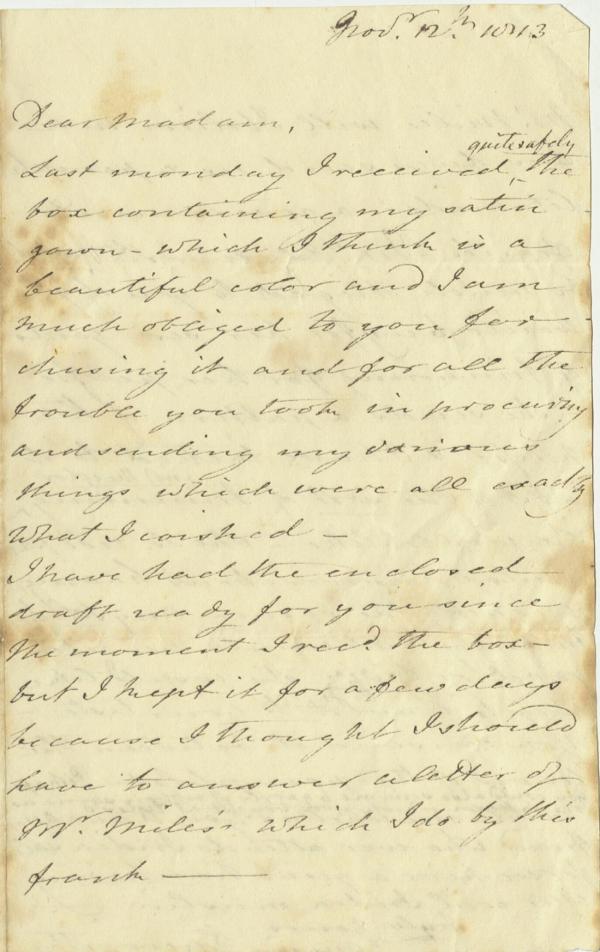 Novr. 12th 1813
Dear Madam,
quite safely
Last monday I received, the
box containing my satin
gown - which I think is a
beautiful color and I am
much obliged to you for
chusing it and for all the
trouble you took in procuring
and sending my various
things which were all exactly
what I wished -
I have had the enclosed
draft ready for you since
the moment I recd. the box -
but I kept it for a few days
because I thought I should
have to answer a letter of
Mr. Miles's which I do by this
frank -